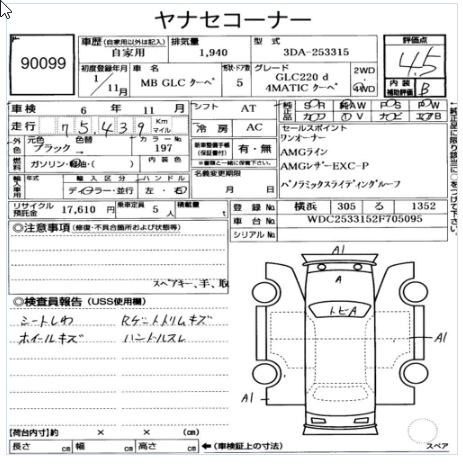 ヤナセコーナー
90099
車歴 (自家用以外は記入) 排気量 型式 評価点
自家用 1,940 3DA-253315 4.5
初度登録年月 車名 型・ドア数 グレード 2WD
1 / 11月 MB GLC クーペ 5 GLC220 d
4MATIC クーペ 4WD
内装補助評価 B
車検 6年 11月 シフト AT 純正品 S・R AAW P・S P・W
走行 75,439 Km マイル 冷房 AC カワ エアB
外色 元色 色替 カラーNo 新車整備手帳(保証書付) 有・無 セールスポイント
ブラック → 197 ワンオーナー
燃料 ガソリン・軽油・( ) 内装色 名義変更期限 AMGライン
輸入車用 年式 輸入区分 ハンドル AMGレザーEXC-P
ディーラー・並行 左・右 月 日 パノラミックスライディングルーフ
リサイクル預託金 17,610 円 乗車定員 5 人 積載量 t 登録No 横浜 305 る 1352
車台No WDC2533152F705095
シリアルNo
◎注意事項 (修復・不具合箇所および状態等)
スペアキー、手、取
◎検査員報告 (USS使用欄)
シートしわ Rゲートトリムキズ
ホイールキズ ハンドルスレ
A1
A
トビA
A1
A1
A1
【荷台内寸】約 × × (cm)
長さ cm 幅 cm 高さ cm ←(車検証上の寸法) スペア